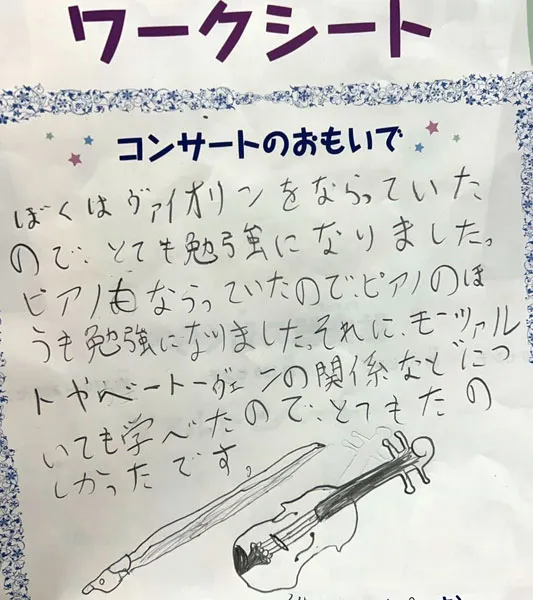 ワークシート
コンサートのおもいで
ぼくはヴァイオリンをならっていた
ので、とても勉強になりました。
ピアノもならっていたので、ピアノのほ
うも勉強になりました。それに、モーツァル
トやベートーヴェンの関係などについ
いても学べたので、とてもたの
しかったです。